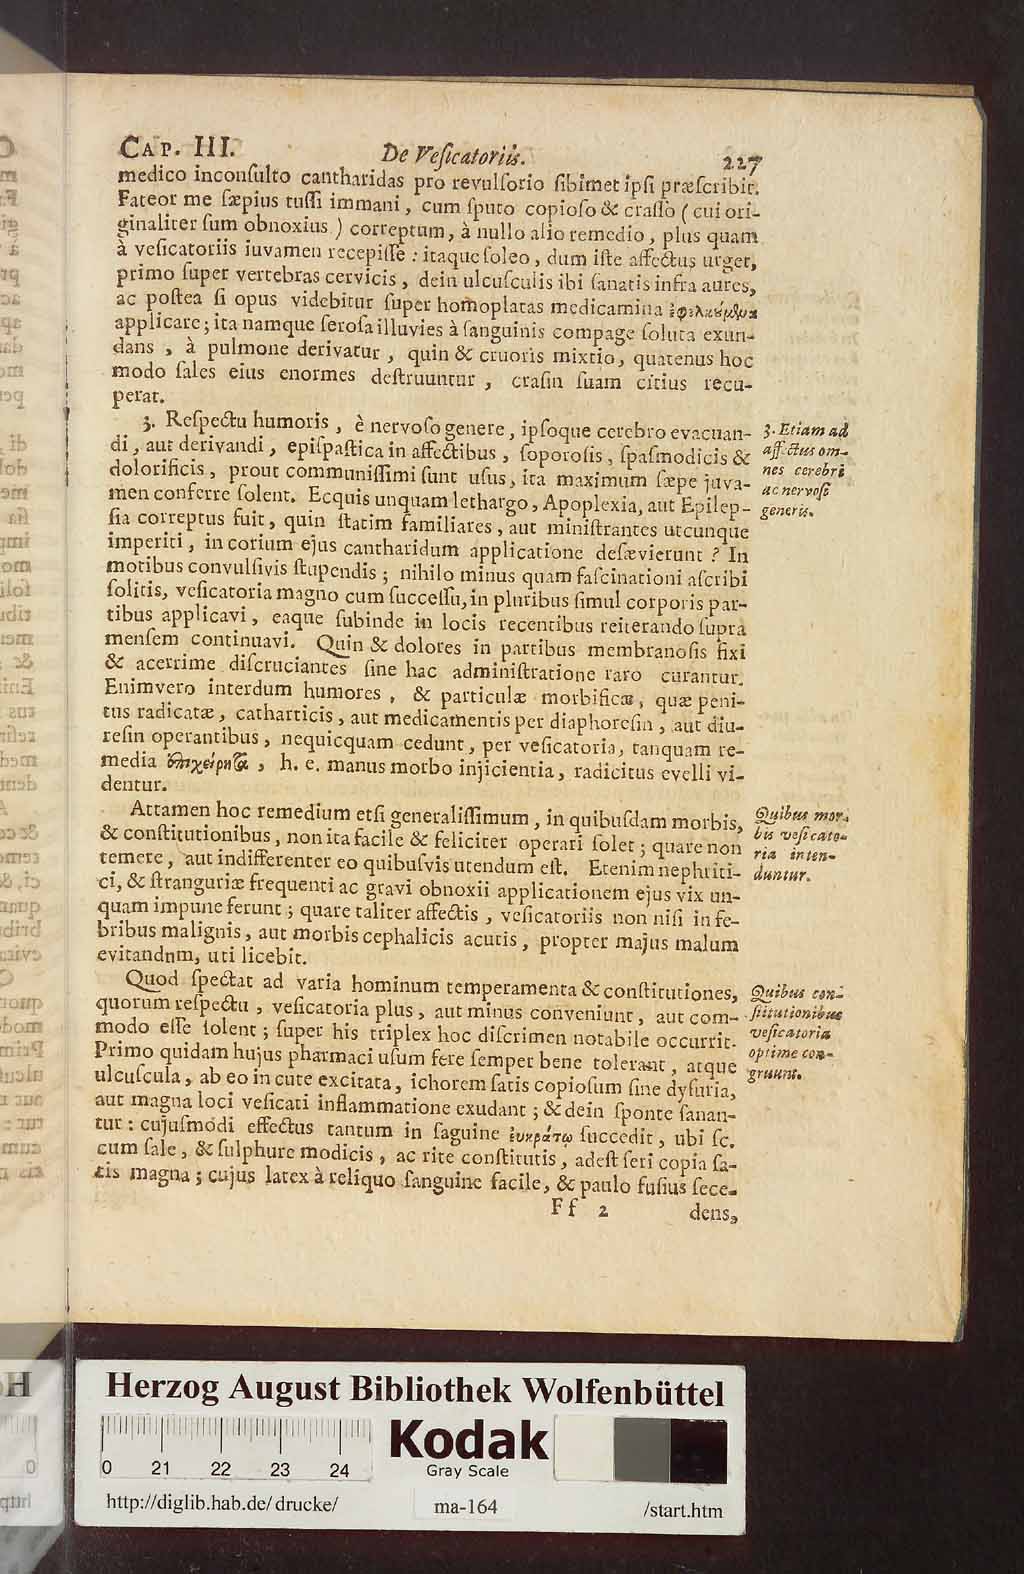 CAP. III. De Veſicatoriis. 227
medico inconſulto cantharidas pro revulſorio ſibimet ipſi præſcribit.
Fateor me ſæpius tuſſi immani, cum ſputo copioſo & craſſo (cui ori-
ginaliter ſum obnoxius) correptum, à nullo alio remedio, plus quam
à veſicatoriis iuvamen recepiſſe: itaque ſoleo, dum iſte affectus urget,
primo ſuper vertebras cervicis, dein ulcuſculis ibi ſanatis infra aures,
ac poſtea ſi opus videbitur ſuper homoplatas medicamina
applicare; ita namque ſeroſa illuvies à ſanguinis compage ſoluta exun-
dans, à pulmone derivatur, quin & cruoris mixtio, quatenus hoc
modo ſales eius enormes deſtruuntur, craſin ſuam citius recu-
perat.
3. Reſpectu humoris, è nervoſo genere, ipſoque cerebro evacuan-
di, aut derivandi, epiſpaſtica in affectibus, ſoporoſis, ſpaſmodicis &
dolorificis, prout communiſſimi ſunt uſus, ita maximum ſæpe juva-
men conferre ſolent. Ecquis unquam lethargo, Apoplexia, aut Epilep-
ſia correptus fuit, quin ſtatim familiares, aut miniſtrantes utcunque
imperiti, in corium ejus cantharidum applicatione deſævierunt? In
motibus convulſivis ſtupendis; nihilo minus quam faſcinationi aſcribi
ſolitis, veſicatoria magno cum ſucceſſu, in pluribus ſimul corporis par-
tibus applicavi, eaque ſubinde in locis recentibus reiterando ſupra
menſem continuavi. Quin & dolores in partibus membranoſis fixi
& acerrime diſcruciantes ſine hac adminiſtratione raro curantur.
Enimvero interdum humores, & particulæ morbificæ, quæ peni-
tus radicatæ, catharticis, aut medicamentis per diaphoreſin, aut diu-
reſin operantibus, nequicquam cedunt, per veſicatoria, tanquam re-
media , h. e. manus morbo injicientia, radicitus evelli vi-
dentur.
Attamen hoc remedium etſi generaliſſimum, in quibuſdam morbis,
& conſtitutionibus, non ita facile & feliciter operari ſolet; quare non
temere, aut indifferenter eo quibuſvis utendum eſt. Etenim nephriti-
ci, & ſtranguriæ frequenti ac gravi obnoxii applicationem ejus vix un-
quam impune ferunt; quare taliter affectis, veſicatoriis non niſi in fe-
bribus malignis, aut morbis cephalicis acutis, propter majus malum
evitandnm, uti licebit.
Quod ſpectat ad varia hominum temperamenta & conſtitutiones,
quorum reſpectu, veſicatoria plus, aut minus conveniunt, aut com-
modo eſſe ſolent; ſuper his triplex hoc diſcrimen notabile occurrit.
Primo quidam hujus pharmaci uſum fere ſemper bene tolerant, atque
ulcuſcula, ab eo in cute excitata, ichorem ſatis copioſum ſine dyſuria,
aut magna loci veſicati inflammatione exudant; & dein ſponte ſanan-
tur: cujuſmodi effectus tantum in ſaguine ἐυκράτῳ ſuccedit, ubi ſc.
cum ſale, & ſulphure modicis, ac rite conſtitutis, adeſt ſeri copia ſa-
tis magna; cujus latex à reliquo ſanguine facile, & paulo fuſius ſece-
Ff 2 dens,
3. Etiam ad
affectus om-
nes cerebri
ac nervoſi
generis.
Quibus mor-
bis veſicato-
ria inten-
duntur.
Quibus con-
ſtitutionibus
veſicatoria
optime con-
gruunt.
Herzog August Bibliothek Wolfenbüttel
0 21 22 23 24
Kodak
Gray Scale
http://diglib.hab.de/drucke/ ma-164 /start.htm